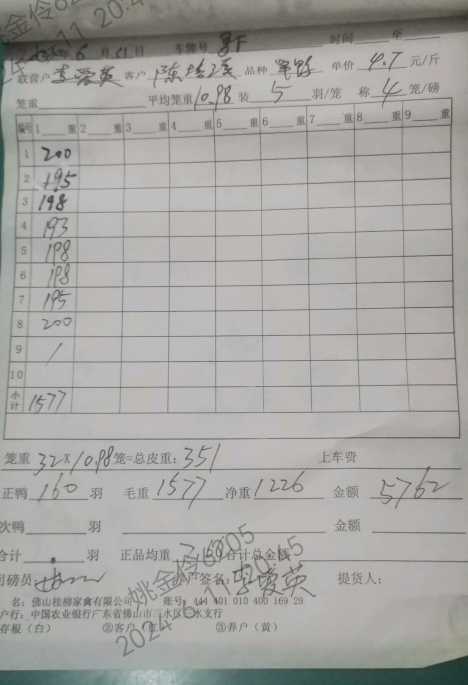 6月11日 车牌号 时间 至
联营户 李爱英 客户 品种 单价 4.7 元/斤
笼重 平均笼重 10.98 装 5 羽/笼 称 4 笼/磅
编号 1 重 2 重 3 重 4 重 5 重 6 重 7 重 8 重 9 重
1 200
2 195
3 198
4 193
5 198
6 198
7 195
8 200
9 /
10
小计 1577
笼重 32×10.98 笼=总皮重: 351 上车费
正鸭 160 羽 毛重 1577 净重 1226 金额 5762
次鸭 羽 金额
合计 羽 正品均重 7.66 合计总金额
司磅员 签名: 李爱英 提货人:
名: 佛山桂柳家禽有限公司 账号: 444 401 010 400 169 29
户行: 中国农业银行广东省佛山市三水区 水支行
存根(白) ②客户(红) ③养户(黄)
姚金伶6905
2024 6 11 20:45